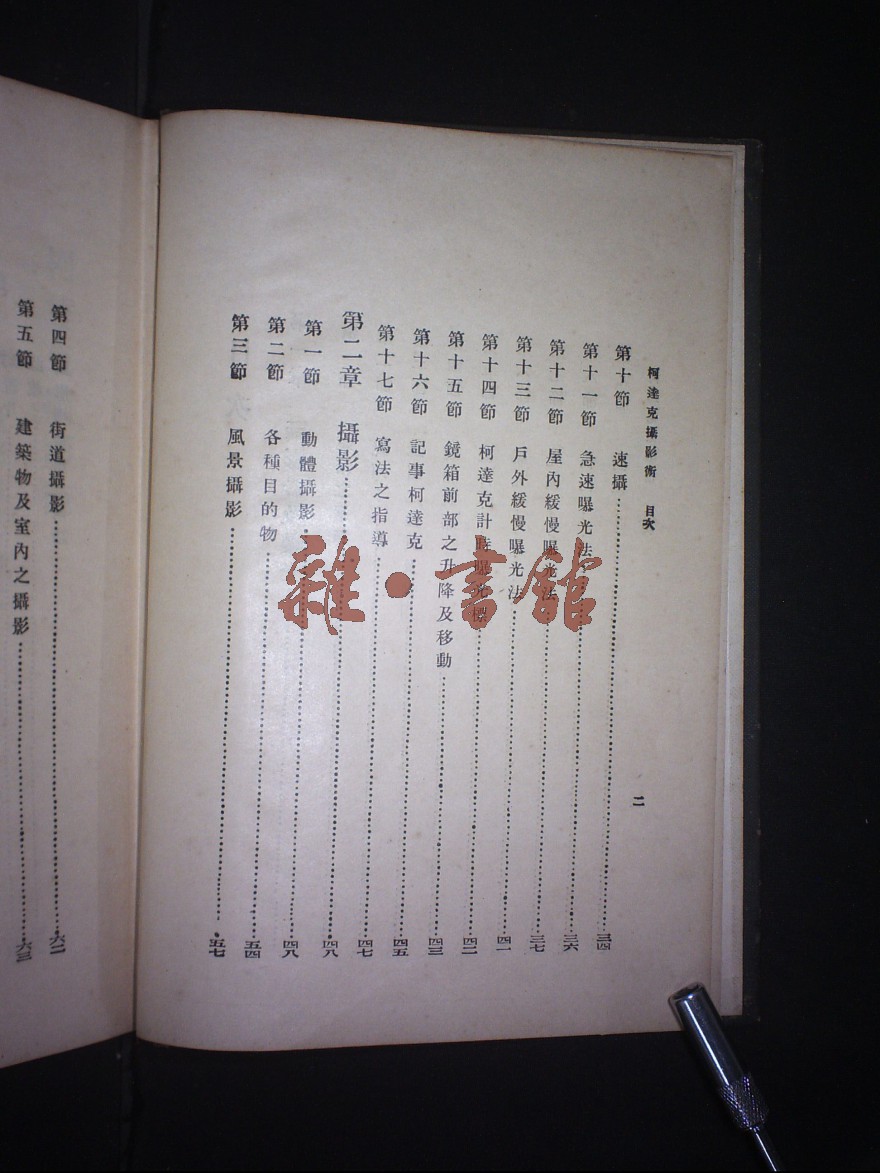 柯達克攝影術 目次
二
第十節 速攝 三四
第十一節 急速曝光法 三六
第十二節 屋內緩慢曝光法 三七
第十三節 戶外緩慢曝光法 四一
第十四節 柯達克計時曝光標 四二
第十五節 鏡箱前部之升降及移動 四三
第十六節 記事柯達克 四五
第十七節 寫法之指導 四七
第二章 攝影 四八
第一節 動體攝影 四八
第二節 各種目的物 五四
第三節 風景攝影 五七
第四節 街道攝影 六二
第五節 建築物及室內之攝影 六三
雜·書館